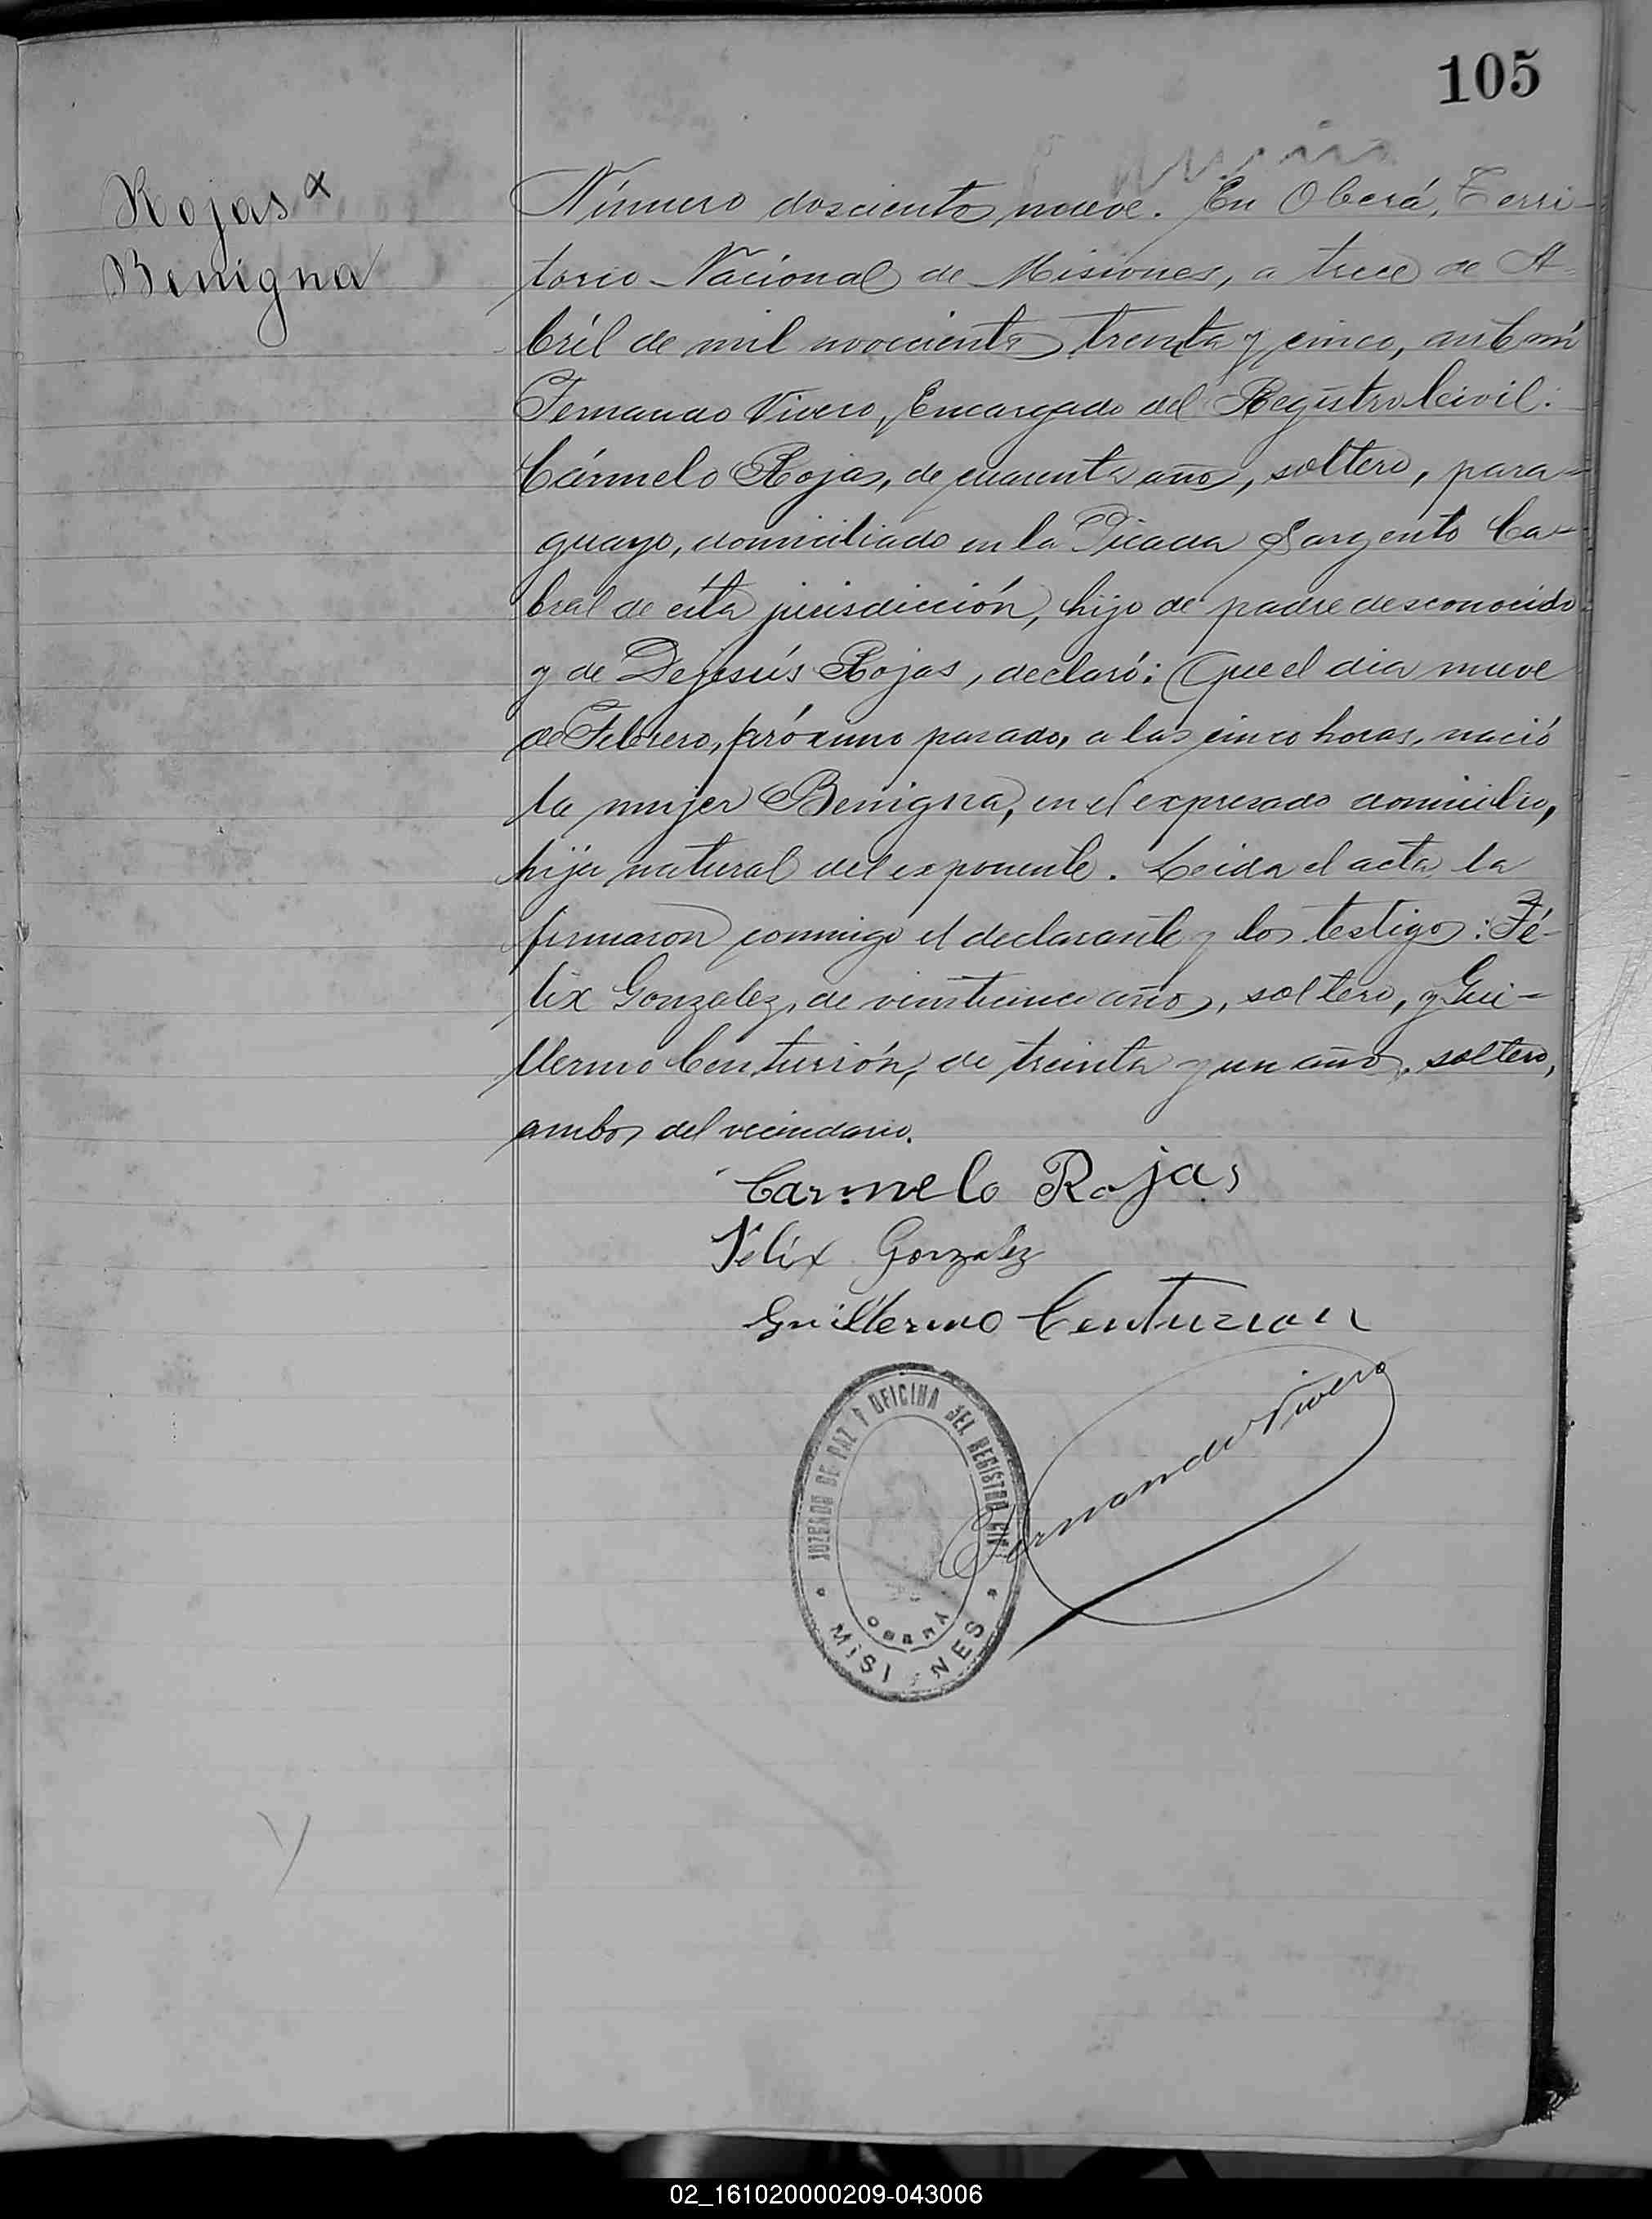 105
Rojas x
Benigna
Número doscientos nueve. En Oberá, Terri-
torio Nacional de Misiones, a trece de A-
bril de mil novecientos trenta y cinco, ante mí
Fernando Vivero, Encargado del Registro Civil:
Cármelo Rojas, de cuarenta años, soltero, para-
guayo, domiciliado en la Picada Sargento Ca-
bral de ésta jurisdicción, hijo de padre desconocido
y de Dejesús Rojas, declaró: Que el dia nueve
de Febrero, próximo pasado, a las cinco horas, nació
la mujer Benigna, en el expresado domicilio,
hija natural del exponente. Leida el acta la
firmaron conmigo el declarante y los testigos: Fé-
lix Gonzalez, de veinticinco años, soltero, y Gui-
llermo Centurión, de treinta y un años, soltero,
ambos del vecindario.
Carmelo Rojas
Felix Gonzalez
Guillermo Centurion
Fernando Vivero
JUZGADO DE PAZ Y OFICINA DEL REGISTRO CIVIL
OBERÁ
MISIONES
02_161020000209-043006